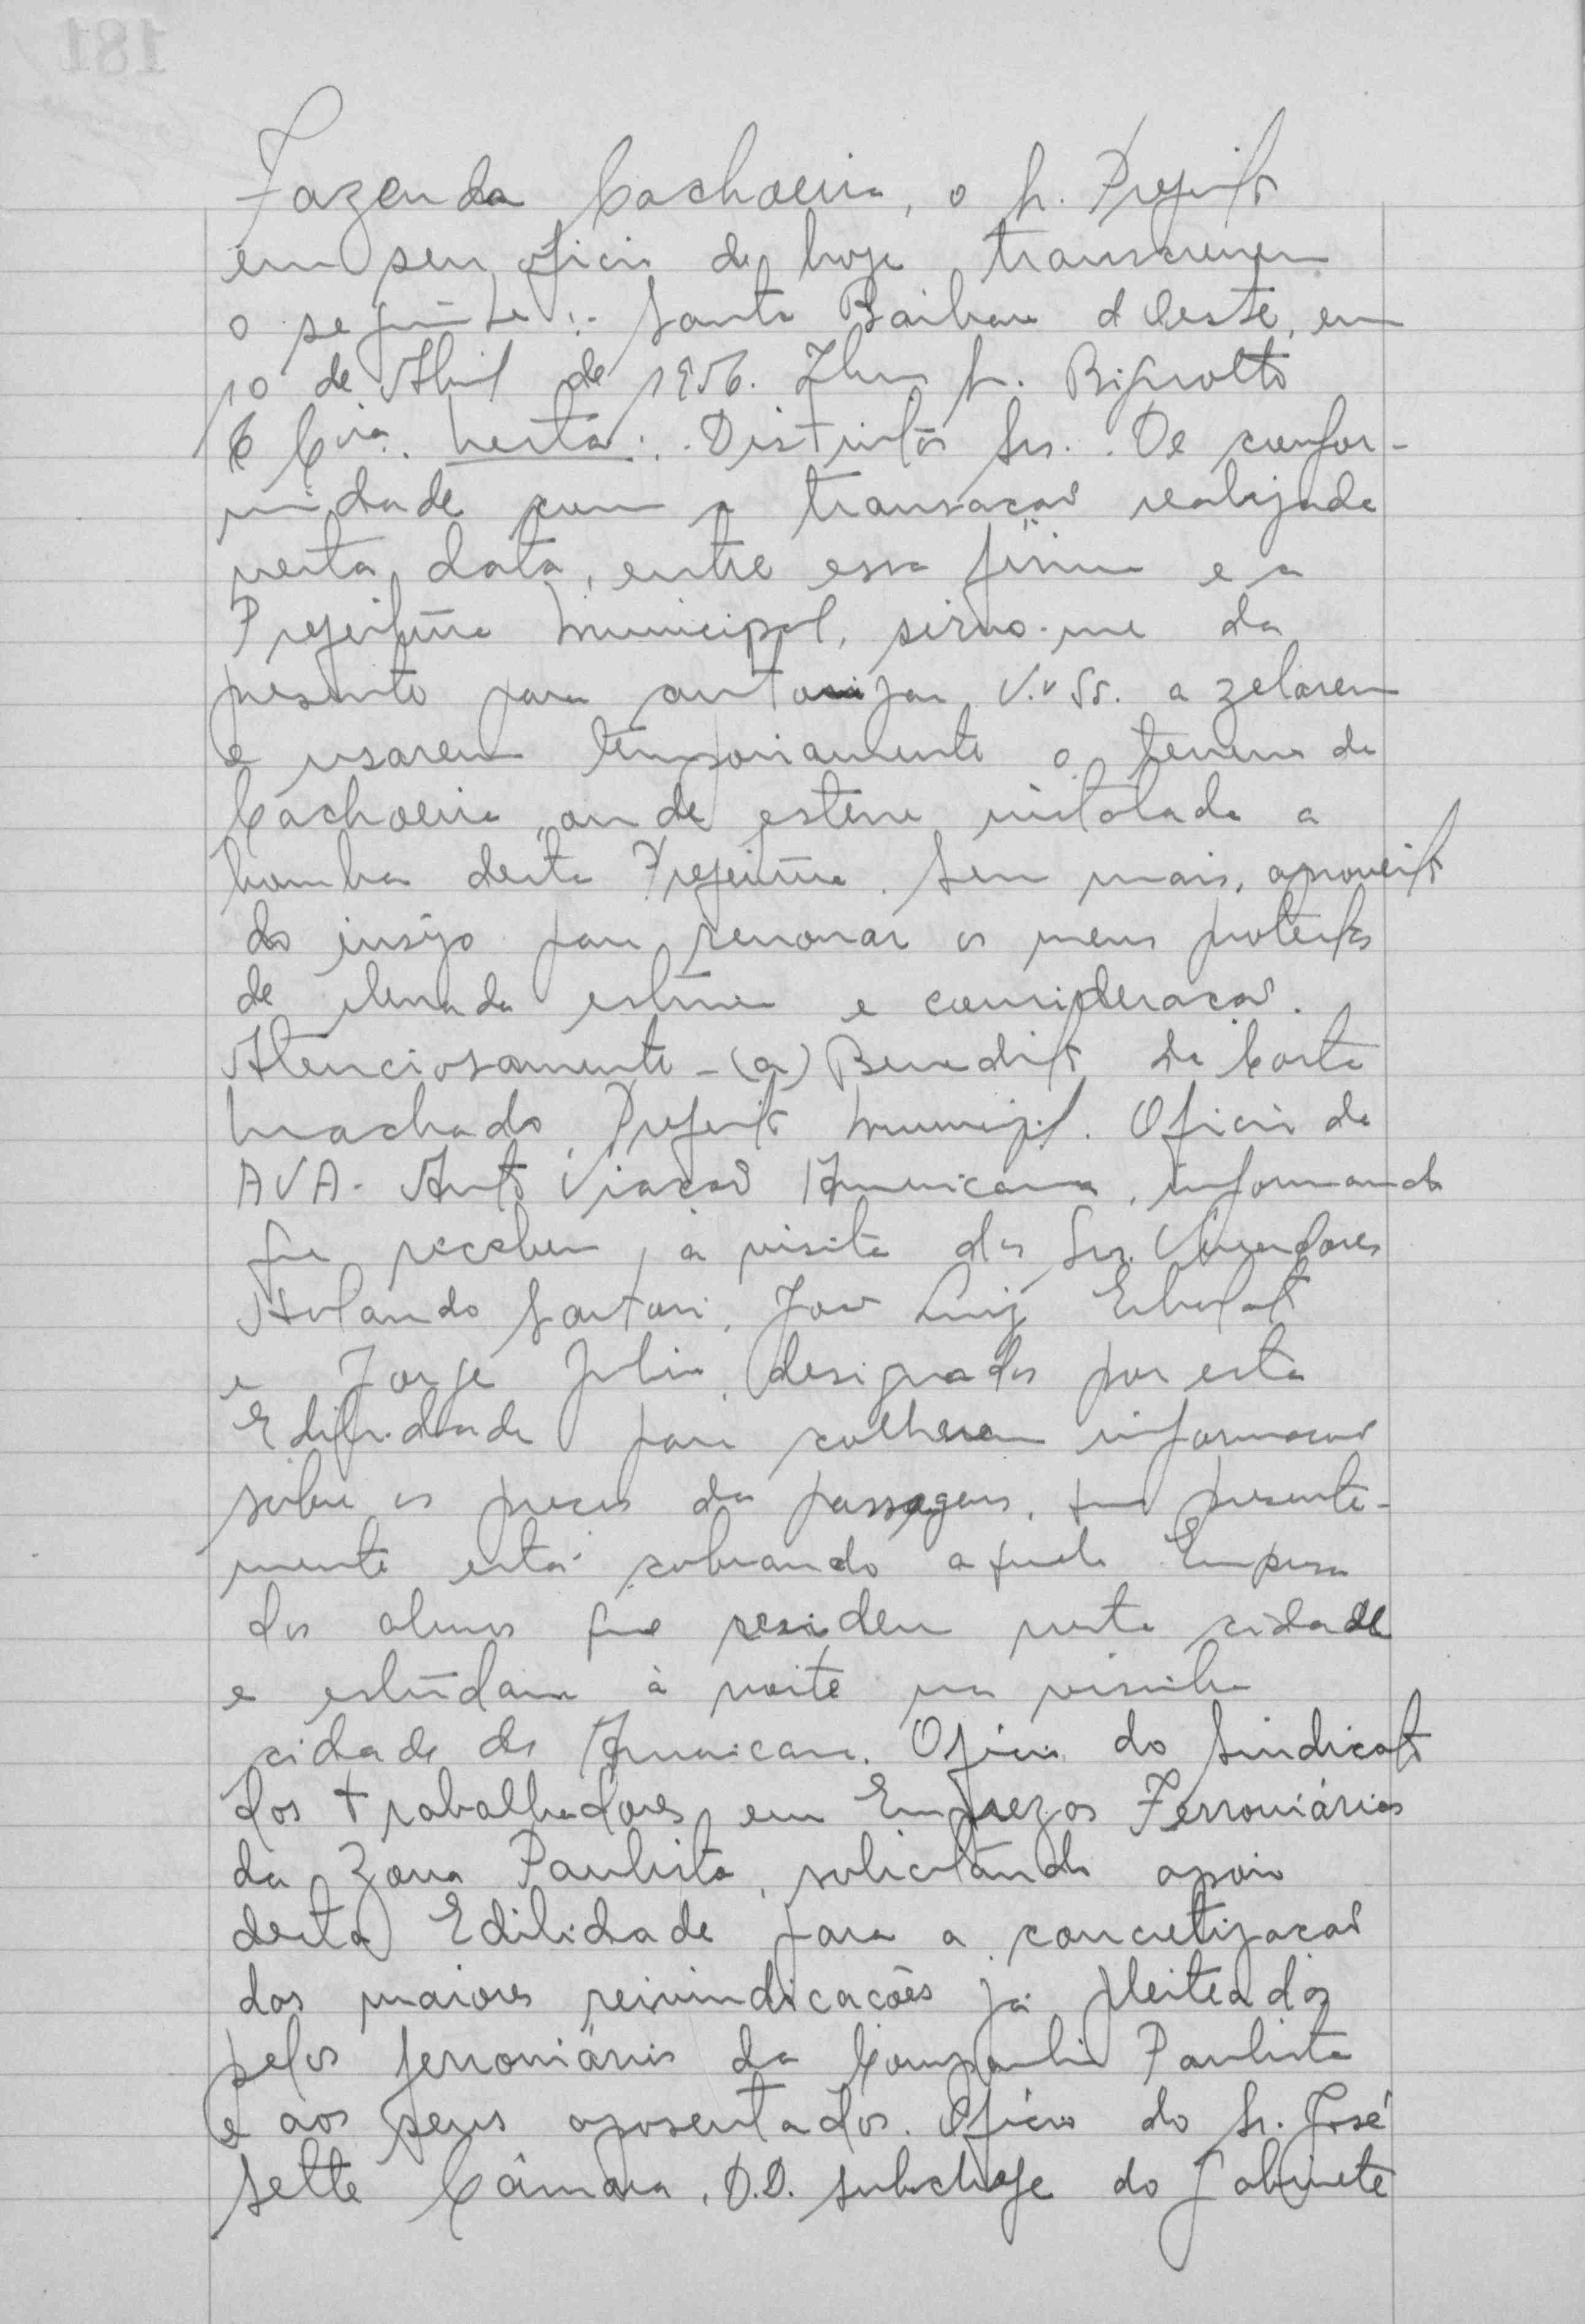 Fazenda Cachoeira, o Sr. Prefeito
em seu oficio de hoje transcreveu
o seguinte:- Santa Barbara d'Oeste, em
10 de Abril de 1956. Ilmo Sr. Bignotto
& Cia. Nesta:. Distintos Srs.. De confor-
midade com a transação realizada
nesta data, entre essa firma e a
Prefeitura Municipal, sirvo-me da
presente para autorizar V.v Ss. a zelarem
e usarem temporiamente o terreno da
Cachoeira onde esteve instalada a
bomba desta Prefeitura. Sem mais, aproveito
do insejo para renovar os meus protestos
de elevada estima e consideração.
Atenciosamente - (a) Benedito da Costa
Machado, Prefeito Municipal. Oficio da
AVA - Auto Viação Americana, informando
que recebeu, a visita dos Srs. Vereadores
Arlando Sartori, José Luiz
e Jorge Julio, designados por esta
Edilidade para colherem informação
sobre os preços das passagens, que presente-
mente está cobrando aquela Empresa
dos alunos que residem nesta cidade
e estudam à noite na visinha
cidade de Americana. Oficio do Sindicato
dos trabalhadores em Emprezas Ferroviárias
da Zona Paulista, solicitando apoio
desta Edilidade para a concretização
das maiores reivindicações já pleiteadas
pelos ferroviários da Companhia Paulista
e aos seus aposentados. Oficio do Sr. José
Sette Câmara, D.D. subchefe do Gabinete